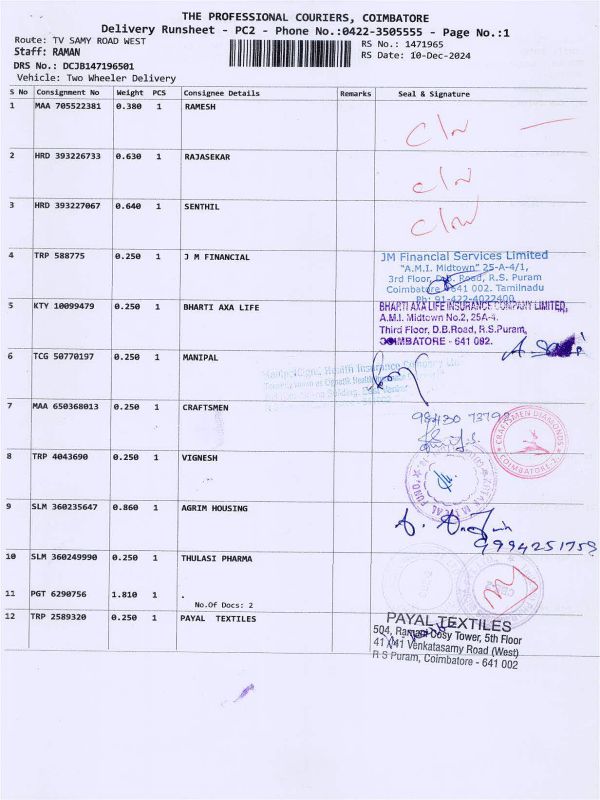 THE PROFESSIONAL COURIERS, COIMBATORE
Delivery Runsheet - PC2 - Phone No.:0422-3505555 - Page No.:1
Route: TV SAMY ROAD WEST
RS No.: 1471965
Staff: RAMAN
RS Date: 10-Dec-2024
DRS No.: DCJB147196501
Vehicle: Two Wheeler Delivery
S No Consignment No Weight PCS Consignee Details Remarks Seal & Signature
1 MAA 705522381 0.380 1 RAMESH
2 HRD 393226733 0.630 1 RAJASEKAR
3 HRD 393227067 0.640 1 SENTHIL
4 TRP 588775 0.250 1 J M FINANCIAL
JM Financial Services Limited
"A.M.I. Midtown" 25-A-4/1,
3rd Floor, D.B. Road, R.S. Puram
Coimbatore 641 002. Tamilnadu
Ph: 91-422-4022400
5 KTY 10099479 0.250 1 BHARTI AXA LIFE
BHARTI AXA LIFE INSURANCE COMPANY LIMITED,
A.M.I. Midtown No.2, 25A-4.
Third Floor, D.B.Road, R.S.Puram,
COIMBATORE - 641 002.
6 TCG 50770197 0.250 1 MANIPAL
Health Insurance Company Ltd
7 MAA 650368013 0.250 1 CRAFTSMEN
CRAFTSMEN DIAMONDS
COIMBATORE-2
8 TRP 4043690 0.250 1 VIGNESH
9 SLM 360235647 0.860 1 AGRIM HOUSING
9994251759
10 SLM 360249990 0.250 1 THULASI PHARMA
11 PGT 6290756 1.810 1 .
No.Of Docs: 2
12 TRP 2589320 0.250 1 PAYAL TEXTILES
PAYAL TEXTILES
504, Raman Cosy Tower, 5th Floor
41 /41 Venkatasamy Road (West)
R S Puram, Coimbatore - 641 002